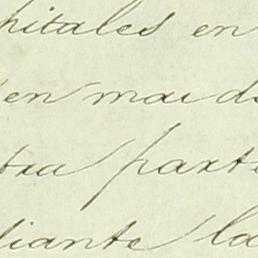 pitales en
en mai d
tra part
diante la